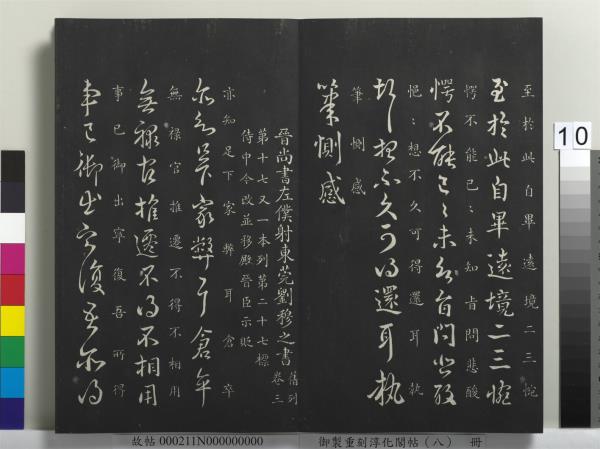 至於此自畢遠境二三惋
至於此自畢遠境二三惋
愕不能已〻未知肯問悲酸
愕不能已〻未知肯問悲酸
悒〻想不久可得還耳執
悒〻想不久可得還耳執
筆惻感
筆惻感
晉尚書左僕射東莞劉穆之書 舊列卷三
第十七又一本列第二十七標
侍中今改並移殿晉臣示貶
亦知足下家弊耳倉卒
亦知足下家弊耳倉卒
無祿官推遷不得不相用
無祿官推遷不得不相用
事已御出寧復吾所得
事已御出寧復吾所得
10
故帖 000211N000000000 御製重刻淳化閣帖（八） 冊